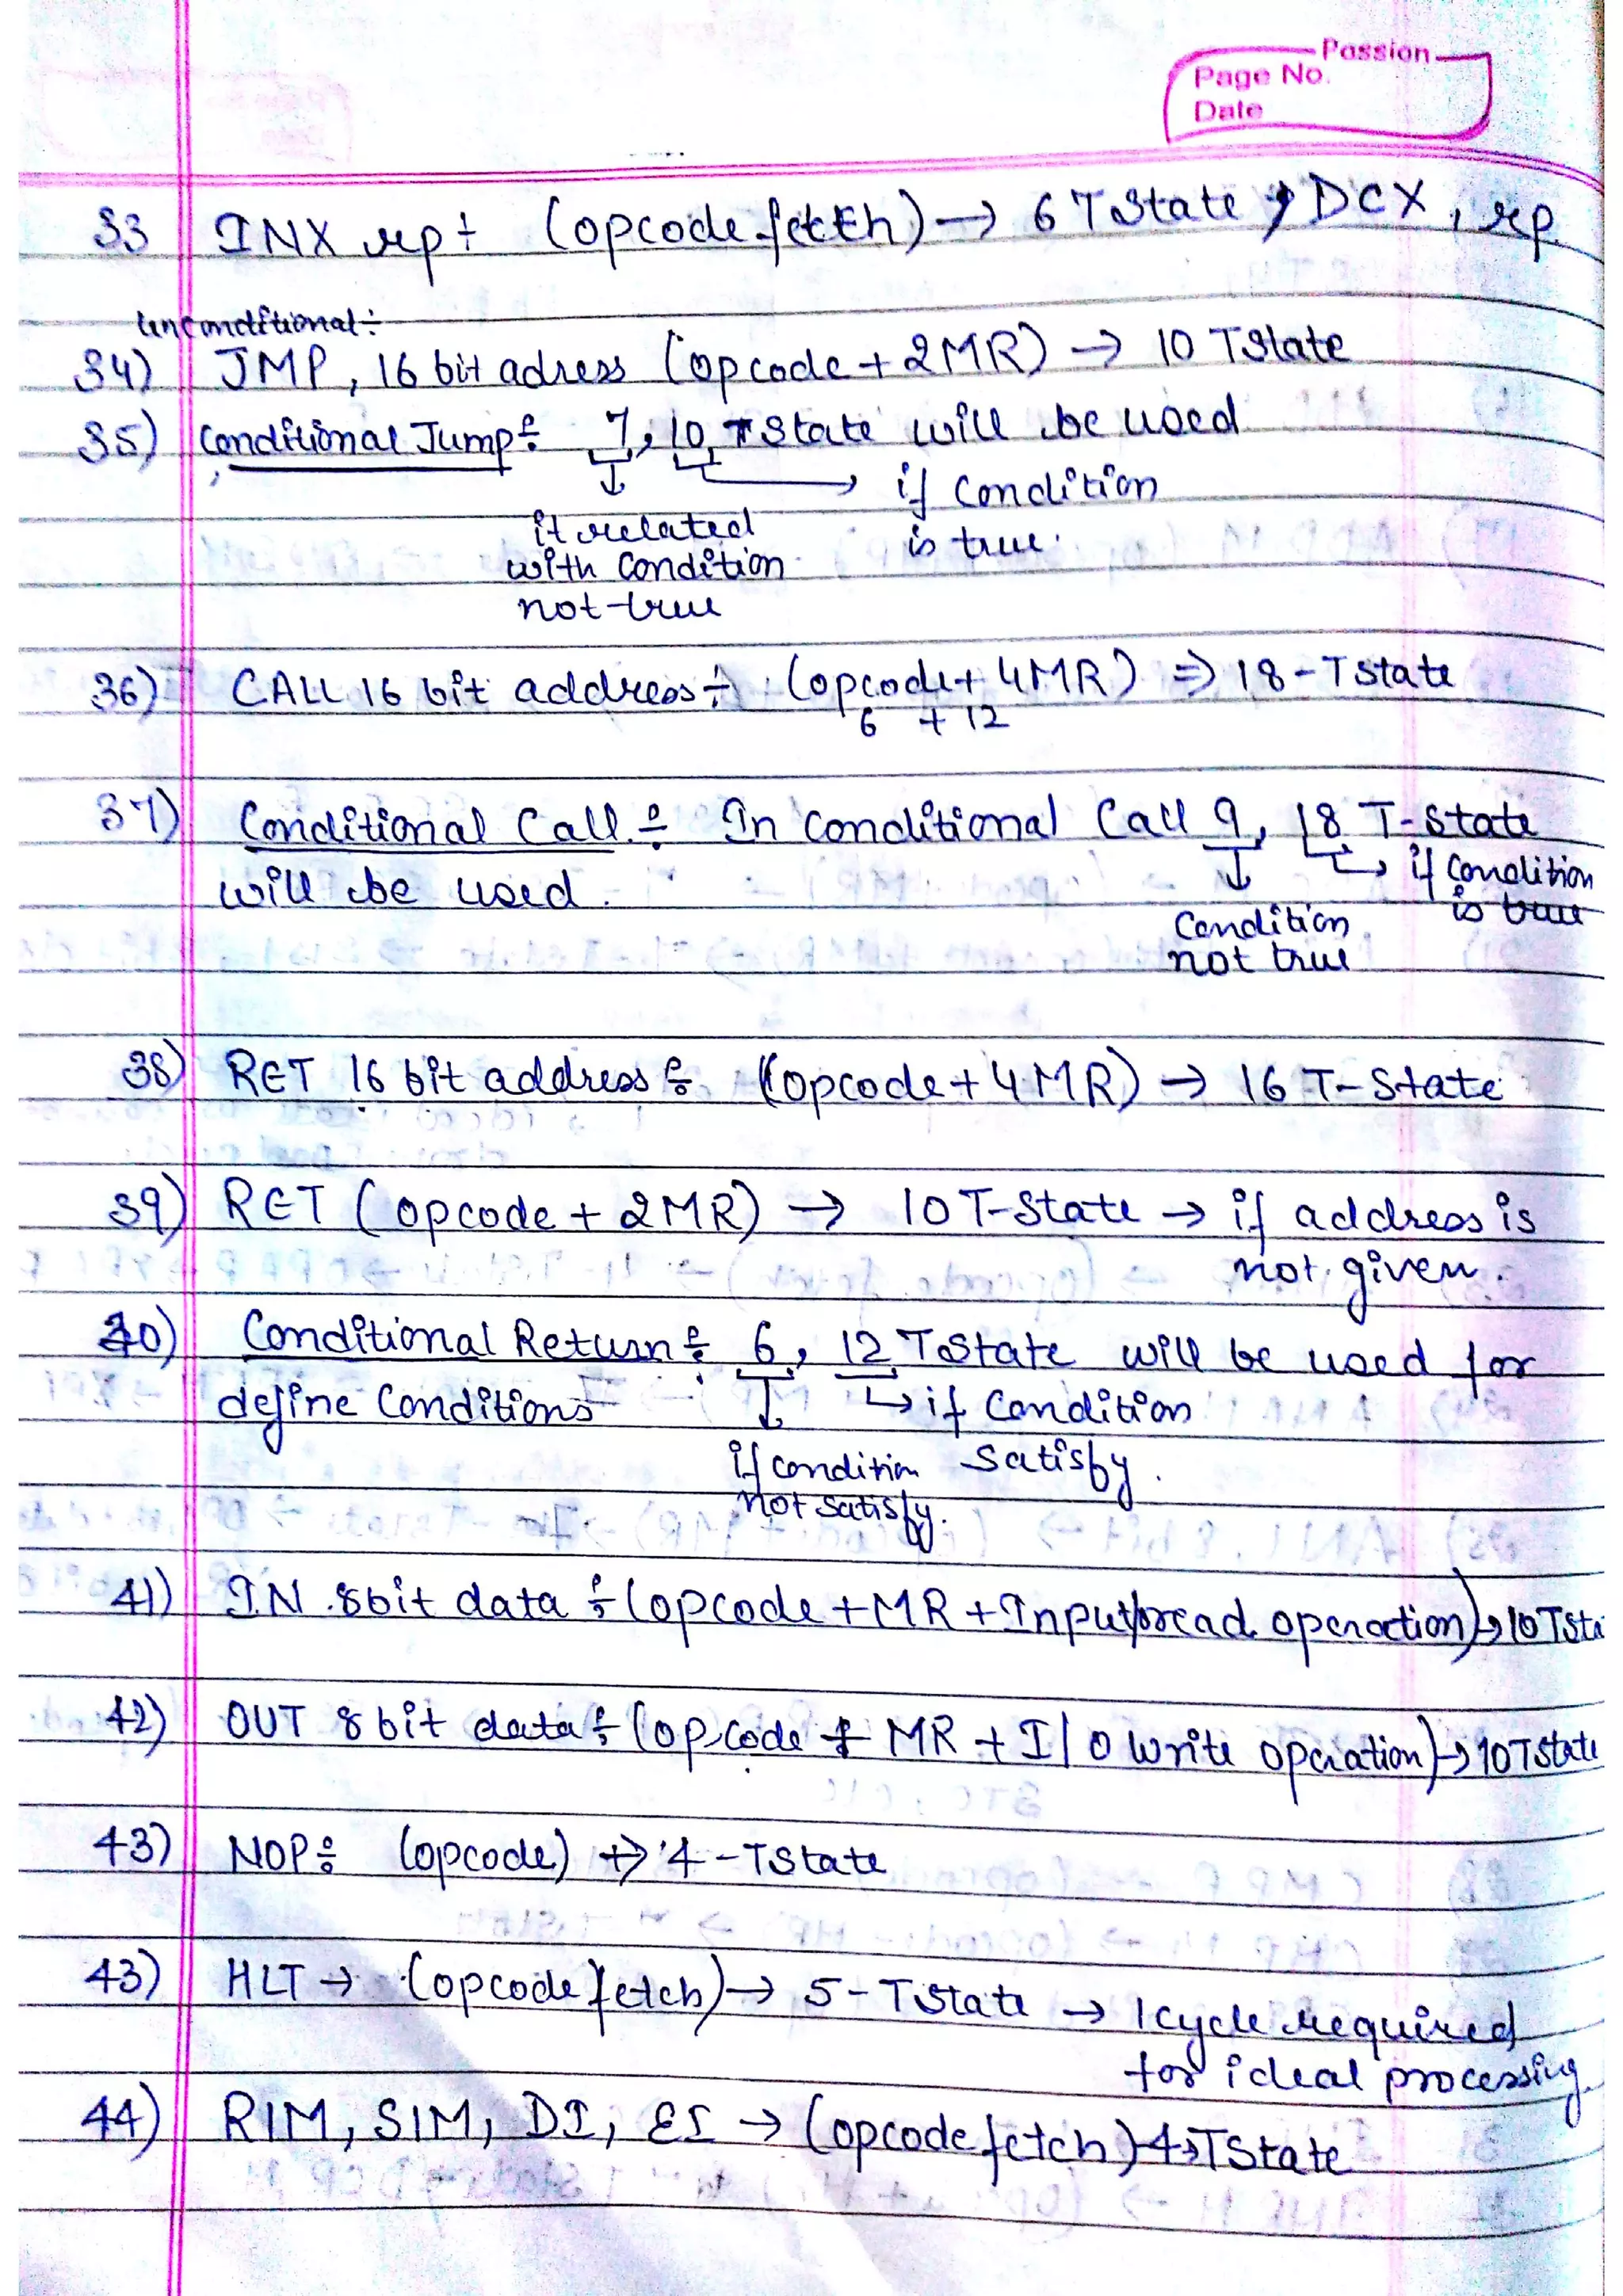 Passion
Page No.
Date
33 INX rp ÷ (opcode fetch) → 6 TState , DCX , rp
unconditional ÷
34) JMP, 16 bit adress (opcode + 2MR) → 10 TState
35) Conditional Jump ÷ 7, 10 TState will be used
if condition
is true.
it related
with condition
not true
36) CALL 16 bit address ÷ (opcode + 4MR) ⇒ 18-Tstate
6 + 12
37) Conditional Call ÷ In conditional Call 9, 18 T-State
will be used.
if condition
is true
Condition
not true
38) RET 16 bit address ÷ (opcode + 4MR) → 16 T-State
39) RET (opcode + 2MR) → 10 T-State → if address is
not given.
40) Conditional Return ÷ 6, 12 TState will be used for
define Conditions
if Condition
Satisby.
if condition
not satisfy.
41) IN 8bit data ÷ (opcode + MR + Input/read operaction) → 10 TSta
42) OUT 8 bit data ÷ (opcode + MR + I/O Write operation) → 10 TState
43) NOP ÷ (opcode) → 4-TState
43) HLT → (opcode fetch) → 5-TState → 1 cycle required
for ideal processing
44) RIM, SIM, DI, EI → (opcode fetch) 4→TState